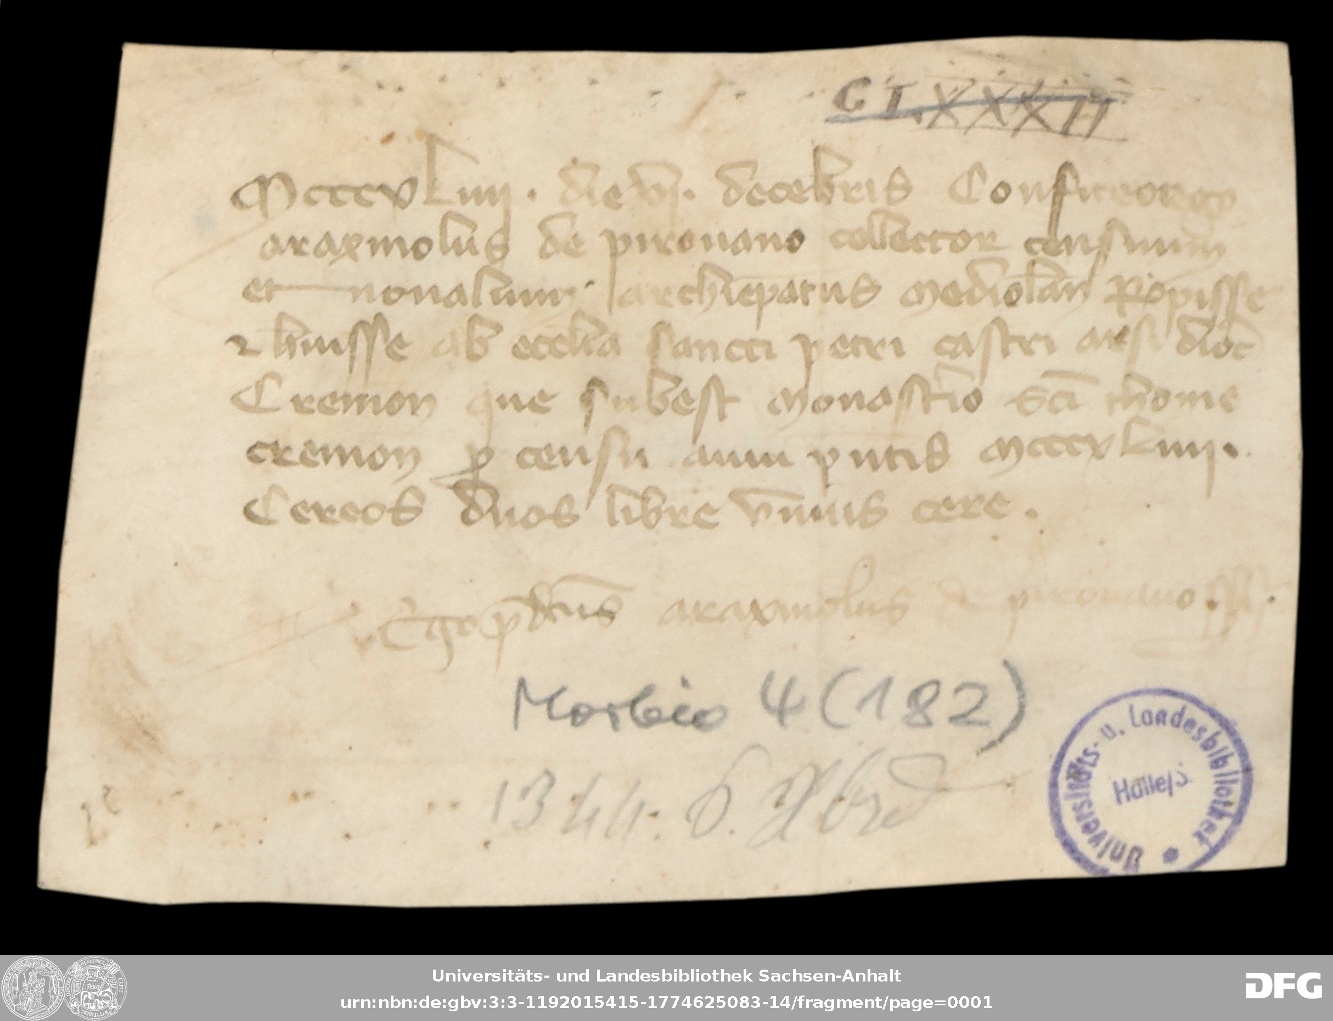 C I. XXXII
Mcccvliiii. die vj. decebris Confiteor ego
araxmolus de pirouano collector censuum
et nonalium archiepatus mediolan Repisse
⁊ huisse ab ecclia sancti petri castri arsi dioc
Cremon que subest monastio sci thome
cremon p censu anni pntis mcccvliiii.
Cereos duos libre unius cere.
Ego pdcus araxmolus de pirouano ss.
Morbio 4 (182)
1344. 6. Xbre
Universitäts- u. Landesbibliothek
Halle/S.
Universitäts- und Landesbibliothek Sachsen-Anhalt
urn:nbn:de:gbv:3:3-1192015415-1774625083-14/fragment/page=0001
DFG